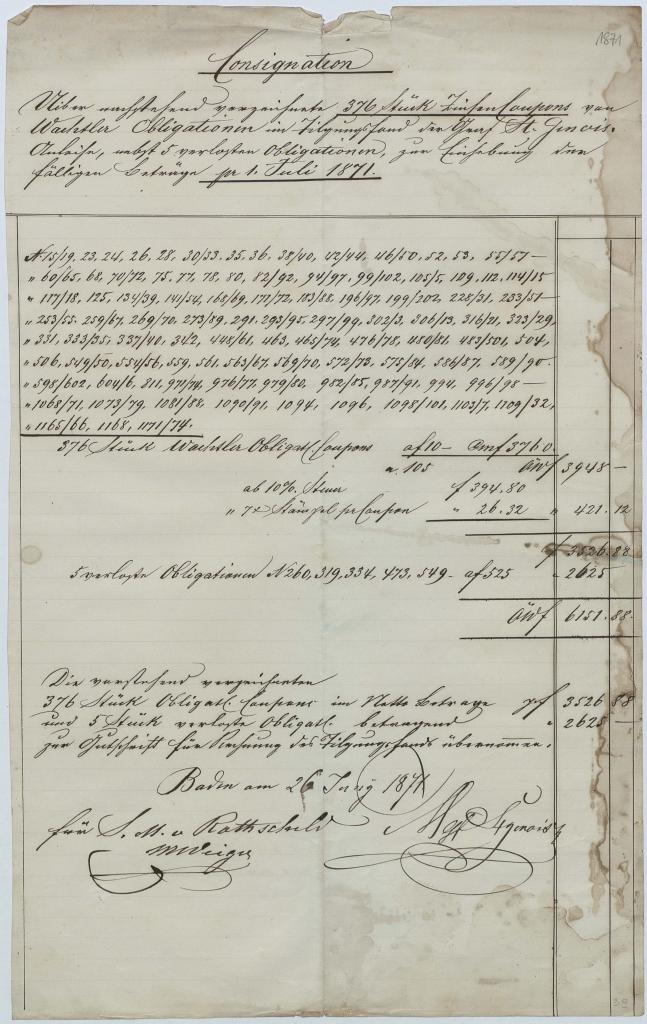 1871
Consignation
Über nachstehend verzeichnete 376 Stück Zinsen Coupons von
Wachtler Obligationen im Tilgungsfond der Graf St. Genois-
Anleihe, nebst 5 verlosten Obligationen, zur Einhebung der
fälligen Beträge pr 1. Juli 1871.
N. 15/19, 23, 24, 26, 28, 30/33, 35, 36, 38/40, 42/44, 46/50, 52, 53, 55/57 —
" 60/65, 68, 70/72, 75, 77, 78, 80, 82/92, 94/97, 99/102, 105/5, 109, 112, 114/15
" 117/18, 125, 134/39, 141/54, 168/69, 171/72, 183/88, 196/97, 199/202, 228/31, 233/51 —
" 253/55, 259/67, 269/70, 273/89, 291, 293/95, 297/99, 302/3, 306/13, 316/21, 323/29,
" 331, 333/35, 337/40, 342, 448/61, 463, 465/74, 476/78, 480/81, 483/501, 504,
" 506, 549/50, 554/56, 559, 561, 563/67, 569/70, 572/73, 575/84, 586/87, 589/90.
" 598/602, 604/6, 811, 971/74, 976/77, 979/80, 982/85, 987/91, 994, 996/98 —
" 1068/71, 1073/79, 1081/88, 1090/91, 1094, 1096, 1098/101, 1103/7, 1109/32,
" 1165/66, 1168, 1171/74.
376 Stück Wachtler Obligatl. Coupons a f 10 — Cmf 3760
a. 105 ÖWf 3948 —
ab 10% Steuer f 394.80
" 7 x Stämpel pr Coupon " 26.32 " 421.12
f 3526.88
5 verloste Obligationen N 260, 319, 334, 473, 549 - a f 525 " 2625
ÖWf 6151.88.
Die vorstehend verzeichneten
376 Stück Obligatl. Coupons im Netto Betrage pf 3526 88
und 5 Stück verloste Obligatl. betragend " 2625 —
zur Gutschrift für Rechnung des Tilgungsfonds übernommen.
Baden am 26 Juny 1871
für S. M. v Rothschild
39